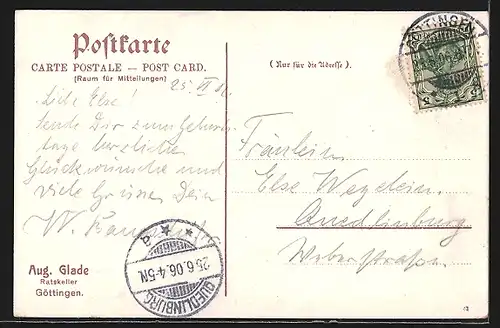 Postkarte
CARTE POSTALE — POST CARD.
(Raum für Mitteilungen)
(Nur für die Adresse)
GÖTTINGEN
25. VI 06.
Liebe Else!
sende Dir zum Geburts-
tage herzliche
Glückwünsche und
viele Grüsse Dein
W.
Fräulein
Else Wegelein.
Quedlinburg
Weberstrasse.
QUEDLINBURG
25.6.06.4-5N.
Aug. Glade
Ratskeller
Göttingen.